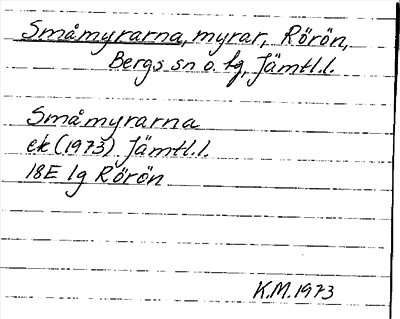 Småmyrarna, myrar, Rörön,
Bergs sn o. tg, Jämtl.l.
Småmyrarna
ek (1973) Jämtl.l.
18E 1g Rörön
K.M. 1973